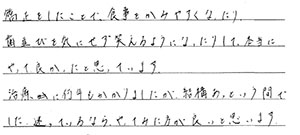 矯正をしたことで、食事もかみやすくなったり
歯並びを気にせず笑えるようになったりして、本当に
やって良かったと思っています。
治療が何年もかかりましたが、結構あっという間で
した。迷っているなら、やってみた方が良いと思います。